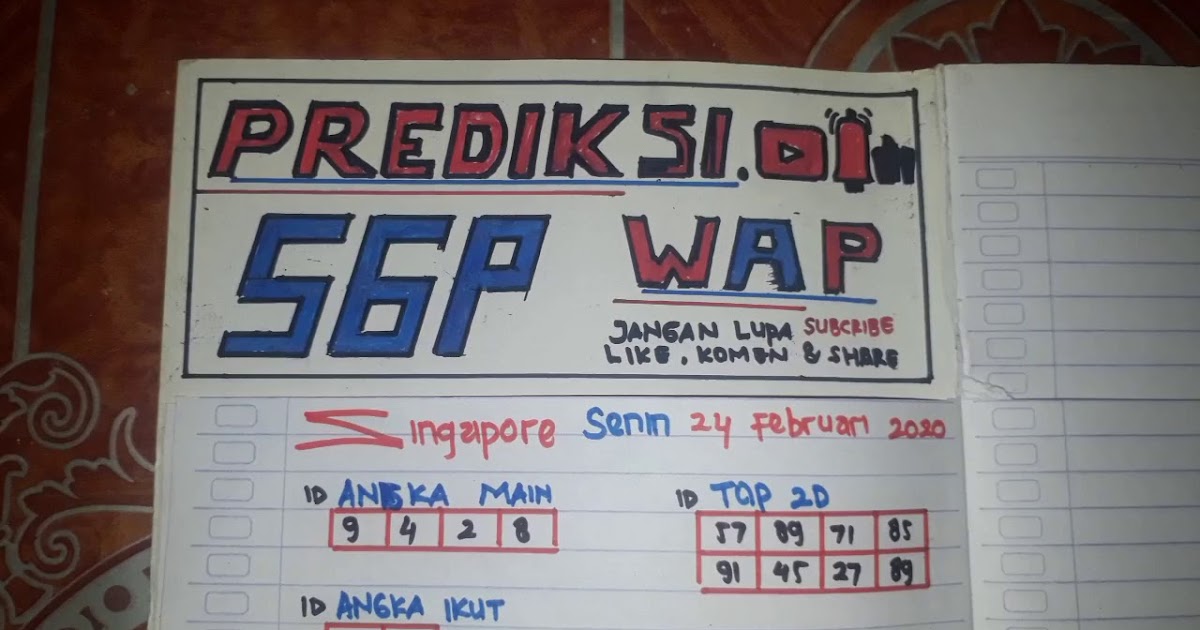 PREDIKSI.
SGP WAP
JANGAN LUPA SUBCRIBE
LIKE, KOMEN & SHARE
Singapore Senin 24 Februari 2020
ID ANGKA MAIN
9 4 2 8
ID TOP 2D
57 89 71 85
91 45 27 89
ID ANGKA IKUT